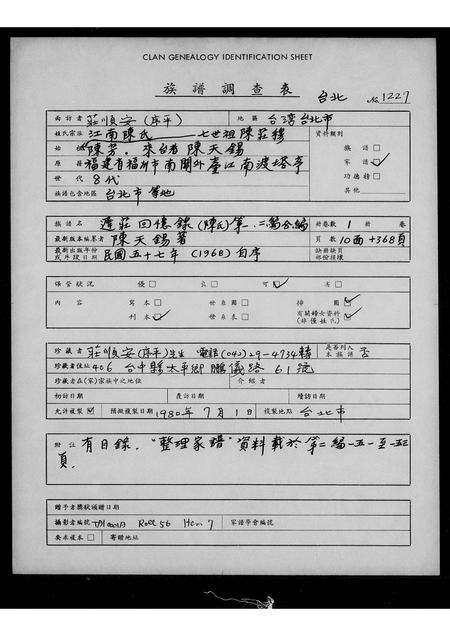 CLAN GENEALOGY IDENTIFICATION SHEET
族譜調查表 台北 No. 1227
面訪者 莊順安(序平) 地區 台灣台北市
姓氏宗族 江南陳氏 七世祖陳莊穆 資料類別
始祖 陳芳. 來台者 陳天錫 族譜□
原籍 福建省福州市南關外臺江南渡塔亭 家譜☑
世代 8代 功德榜□
族譜包含地區 台北市等地 其他
族譜名 遲莊回憶錄(陳氏)第一.二編合編 卷數 1 卷
最新版本編纂者 陳天錫著 頁數 10面+368頁
最新出版年份或序跋日期 民國五十七年 (1968) 自序 缺冊缺頁部份損壞
保管狀況 優□ 良□ 可☑ 差□
內容 寫本□ 世系圖□ 神圖☑
刊本☑ 世系表□ 有關婦女資料(非僅姓氏)☑
珍藏者 莊順安(序平)先生 電話(042)29-4734轉 是否列入本族譜 否
珍藏者住址 406 台中縣太平鄉鵬儀路61號
珍藏者在(家)宗族中之地位 介紹者
初訪日期 度訪日期 續訪日期
允許複製☑ 預擬複製日期 1980年7月1日 複製地點 台北市
附註 有目錄."整理家譜"資料載於第二編一五一至一五三
頁.
贈予者獎狀頒贈日期
攝影者編號 Roll 56 Item 7 家譜學會編號
要來複本□ 寄贈地址